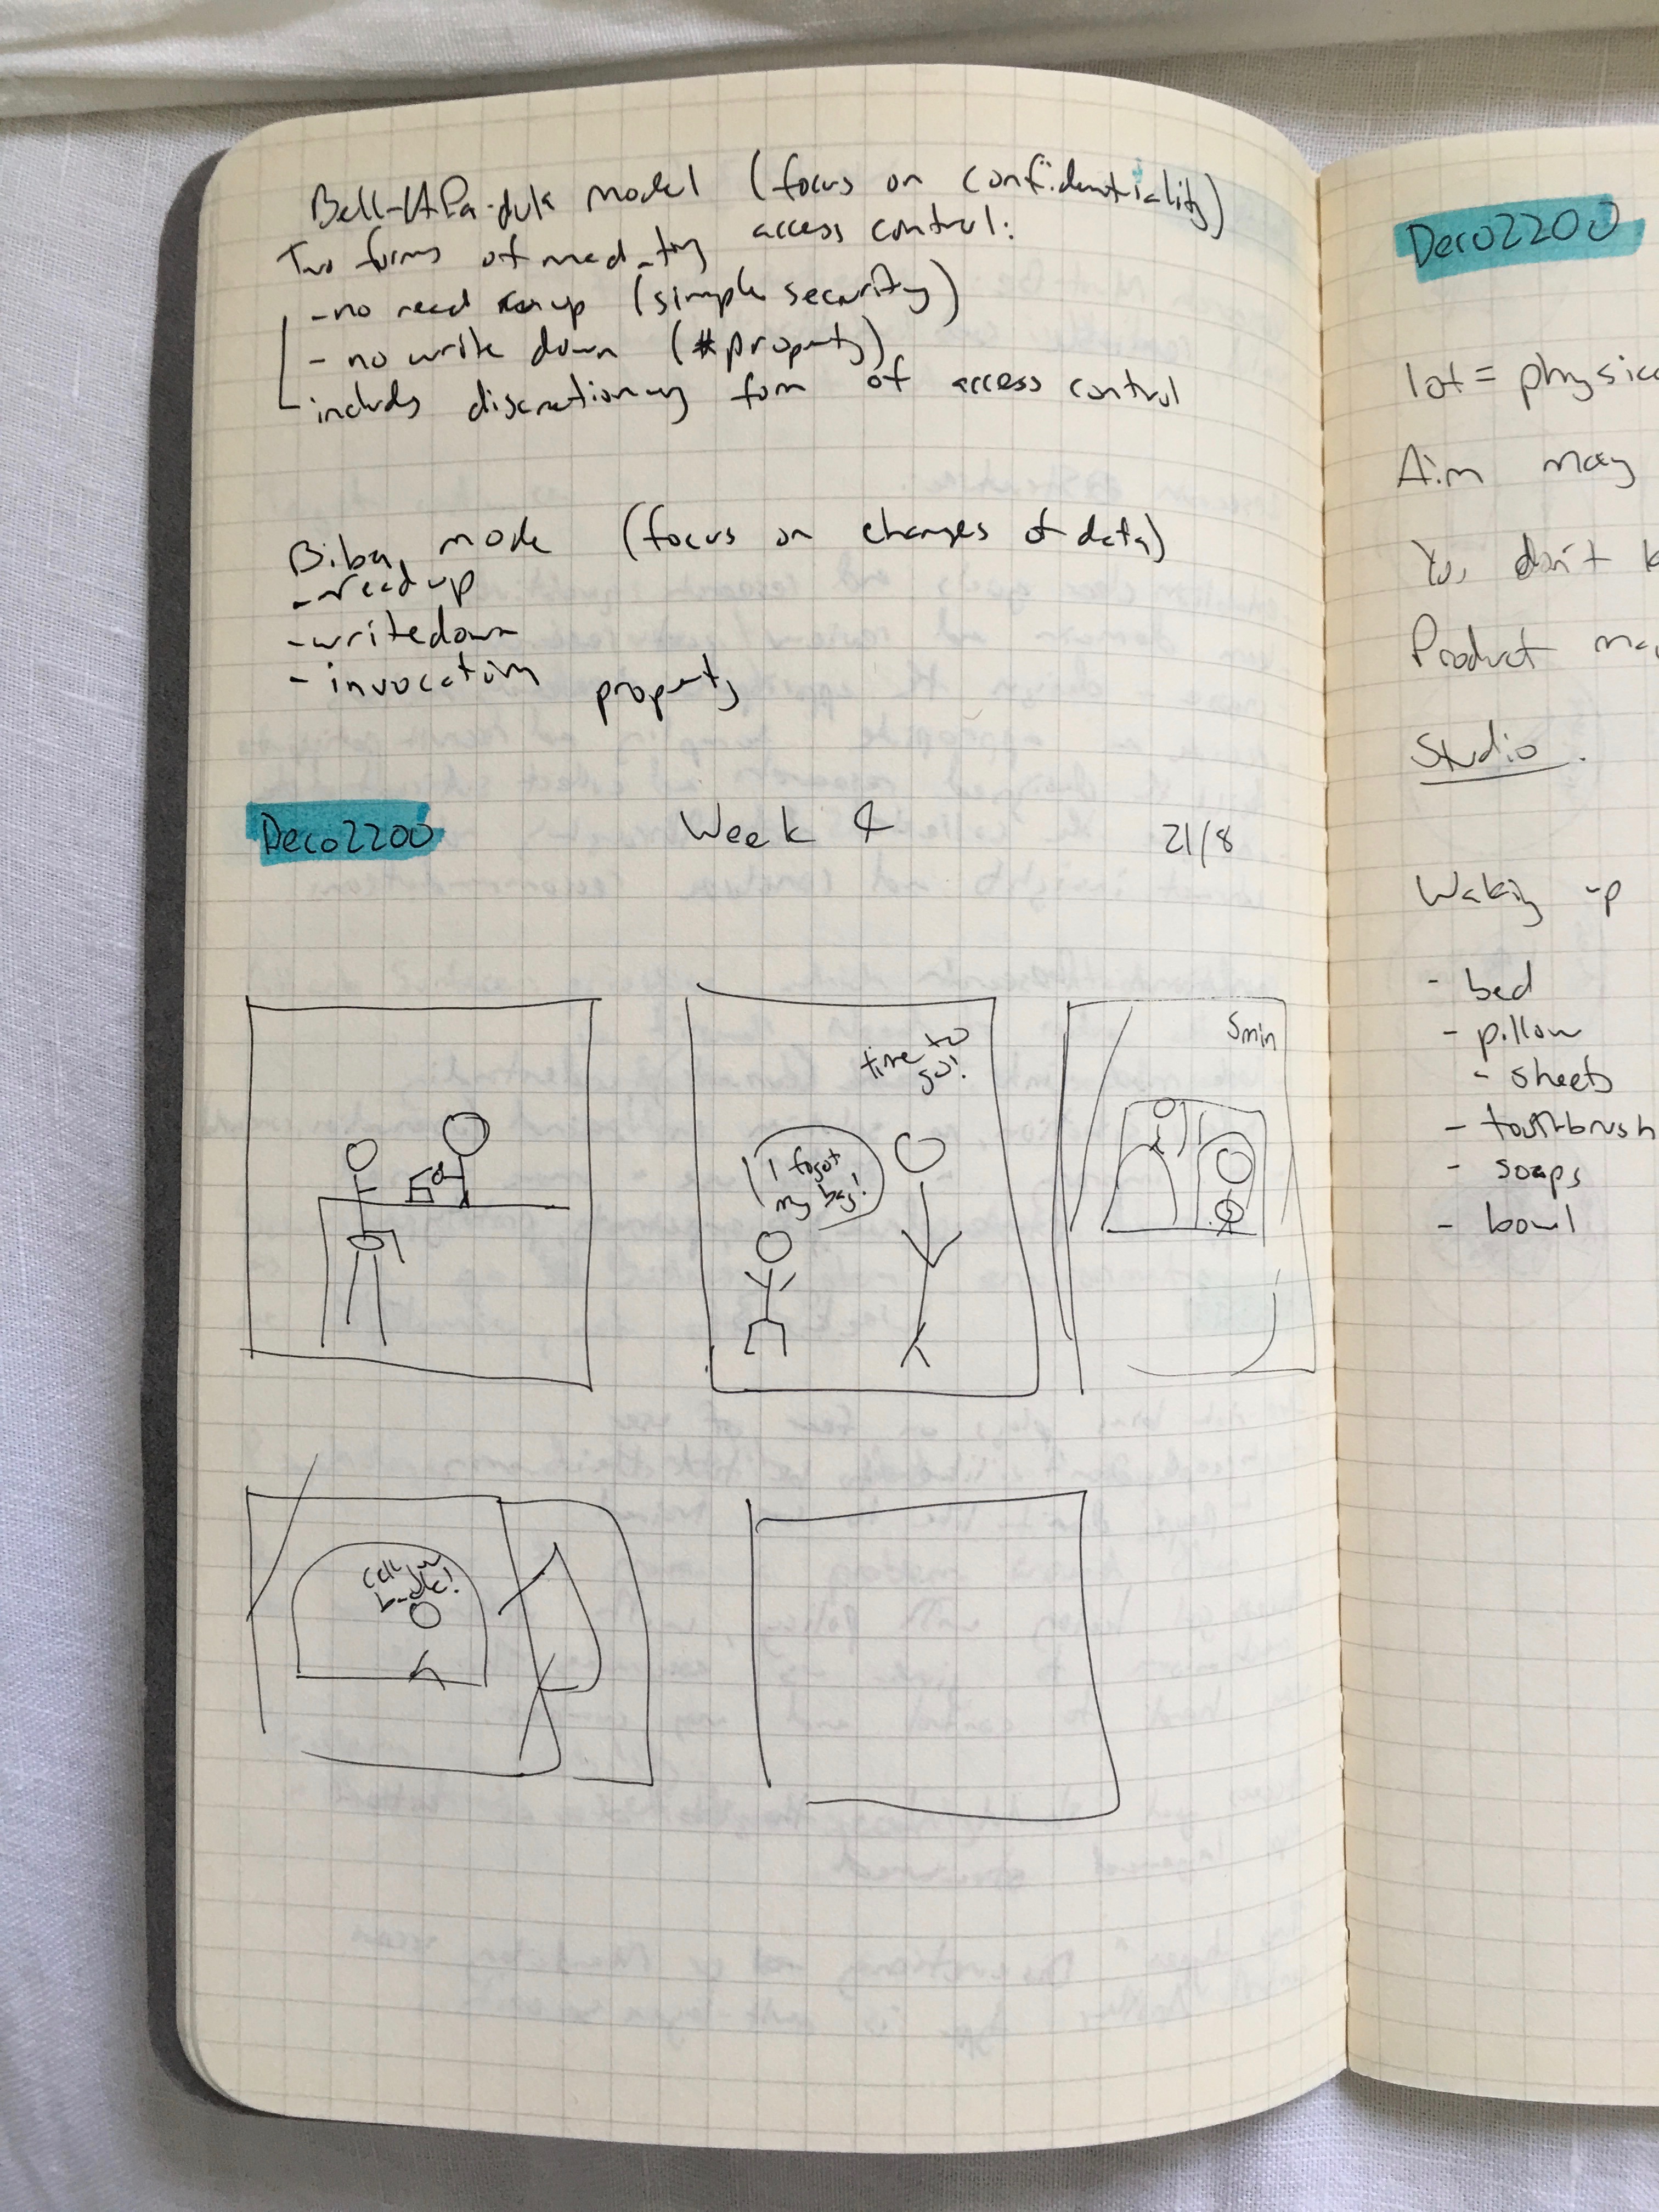 Bell-LaPa-dula model (focus on confidentiality)
Two forms of access control:
- no read up (simple security)
- no write down (* property)
- includes discretionary form of access control
Biba mode (focus on changes of data)
- read up
- write down
- invocation property
Deco2200 Week 4 21/8
time to
go!
I forgot
my bag!
5min
Deco2200
Iot = physica
Aim may
You don't k
Product ma
Studio.
Waking up
- bed
- pillow
- sheets
- toothbrush
- soaps
- bowl